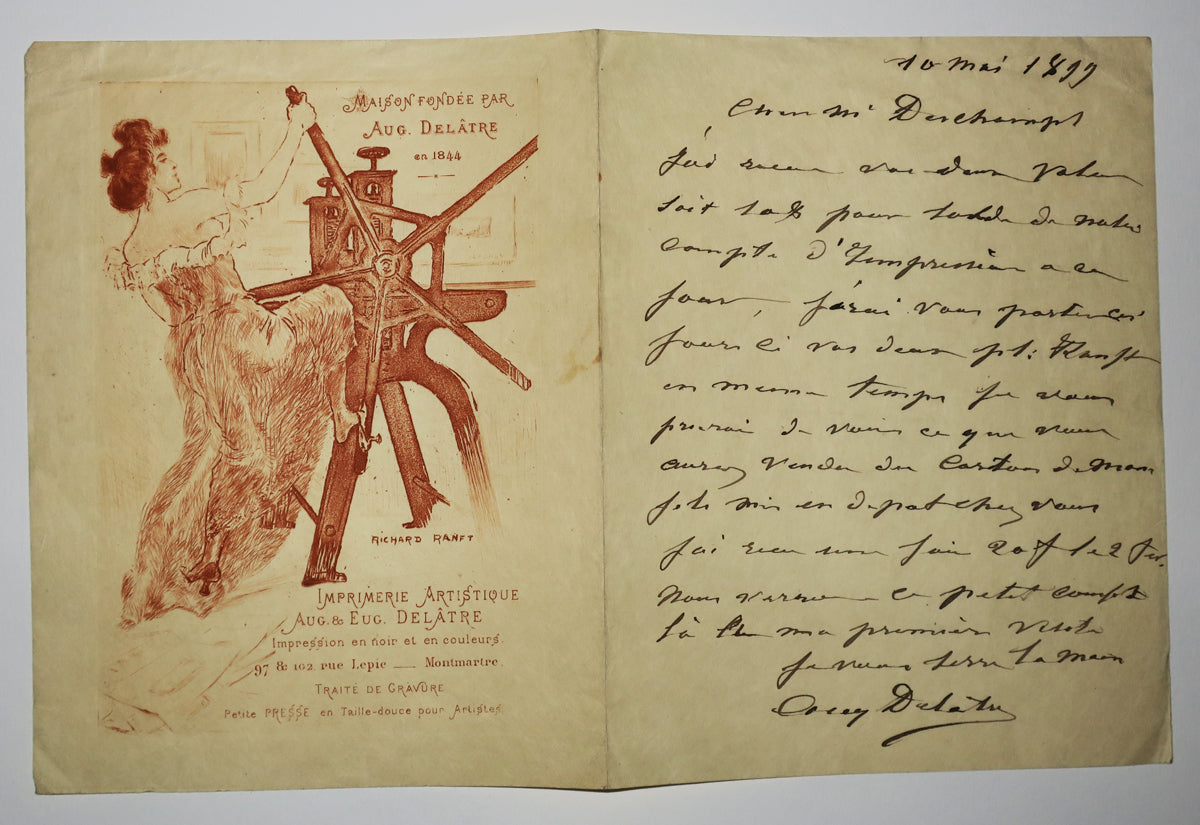 MAISON FONDÉE PAR
AUG. DELÂTRE
en 1844
RICHARD RANFT
IMPRIMERIE ARTISTIQUE
AUG. & EUG. DELÂTRE
Impression en noir et en couleurs.
97 & 102. rue Lepic — Montmartre.
TRAITÉ DE GRAVURE
Petite PRESSE en Taille-douce pour Artistes
10 Mai 1899
Cher Mr Deschamps
J'ai recu vos deux
soit pour solde de notre
compte d'Impression a ce
jour, j'irai vous porter ces
jours ci vos deux pl: Ranft
en meme temps je vous
prierai de voir ce que vous
aurez vendu du Carton de mon
fils mis en depot chez vous
j'ai recu une fois 20f le 2
Nous verrons ce petit compte
là ma premiere visite
je vous serre la main
Aug Delâtre